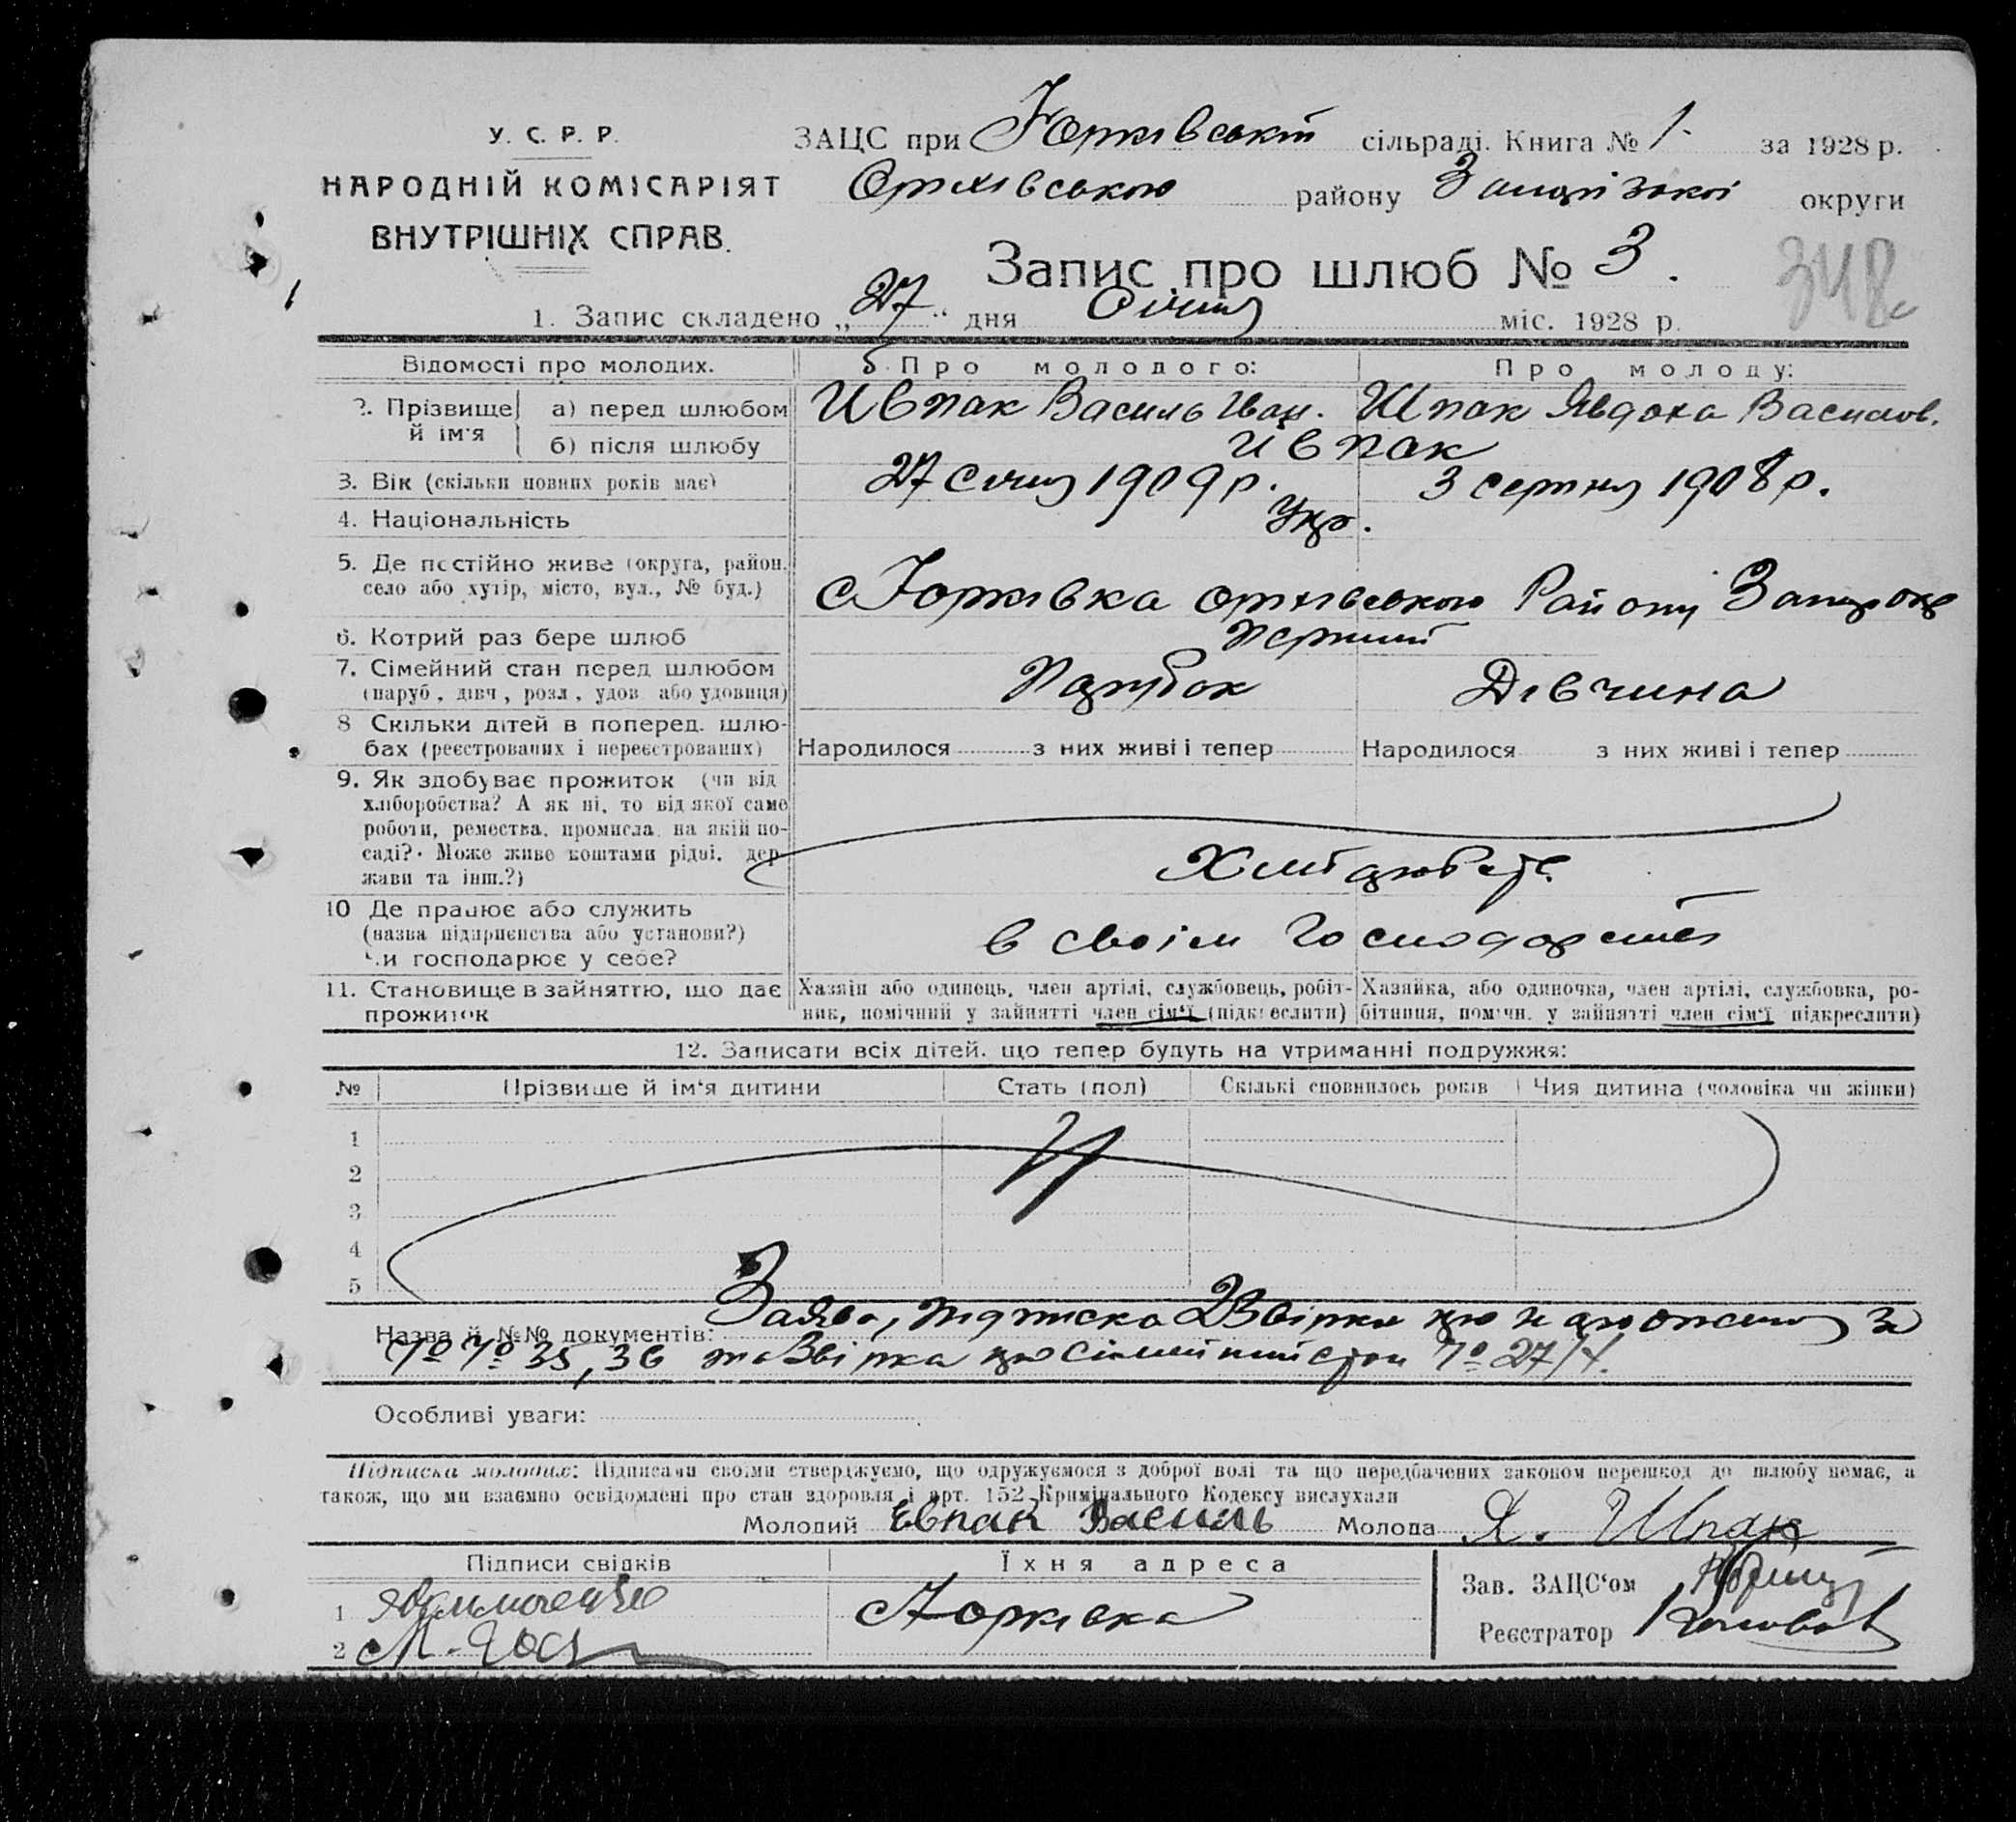 У. С. Р. Р.
НАРОДНІЙ КОМІСАРІЯТ
ВНУТРІШНІХ СПРАВ.
ЗАЦС при Юрківській сільраді. Книга № 1 за 1928 р.
Оріхівського району Запорізької округи
Запис про шлюб № 3.
348
1. Запис складено „27" дня Січня міс. 1928 р.
Відомості про молодих. Про молодого: Про молоду:
2. Прізвище й ім'я а) перед шлюбом Ивпак Василь Иван. Шпак Явдоха Василов.
б) після шлюбу Ивпак
3. Вік (скільки повних років має) 27 січня 1909 р. 3 серпня 1908 р.
4. Національність Укр.
5. Де постійно живе (округа, район,
село або хутір, місто, вул., № буд.) с Юрківка Оріхівського Району Запор окр
6. Котрий раз бере шлюб Перший
7. Сімейний стан перед шлюбом
(паруб., дівч., розл., удов. або удовиця) Парубок Дівчина
8 Скільки дітей в поперед. шлю-
бах (реєстрованих і нереєстрованих) Народилося з них живі і тепер Народилося з них живі і тепер
9. Як здобуває прожиток (чи від
хліборобства? А як ні, то від якої саме
роботи, ремества, промисла, на якій по-
саді? Може живе коштами рідні, дер-
жави та інш.?)
10 Де працює або служить
(назва підприємства або установи?)
чи господарює у себе? в своїм господарстві
11. Становище в зайняттю, що дає
прожиток
Хазяїн або одинець, член артілі, службовець, робіт-
ник, помічний у зайнятті член сім'ї (підкреслити)
Хазяйка, або одиночка, член артілі, службовка, ро-
бітниця, помічн. у зайнятті член сім'ї підкреслити)
12. Записати всіх дітей, що тепер будуть на утриманні подружжя:
№ Прізвище й ім'я дитини Стать (пол) Скількі сповнилось років Чия дитина (чоловіка чи жінки)
1
2
3
4
5
Назва й №№ документів: Заява, підписка 2 Звірки про народження за
№ № 35, 36 та Звірка про сімейний стан № 27/4.
Особливі уваги:
Підписка молодих: Підписами своїми стверджуємо, що одружуємося з доброї волі та що передбачених законом перешкод до шлюбу немає, а
також, що ми взаємно освідомлені про стан здоровля і арт. 152 Кримінального Кодексу вислухали
Молодий Евпак Василь Молода Я. Шпак
Підписи свідків Їхня адреса
Зав. ЗАЦС'ом
1 с Юрківка
Реєстратор
2 М.